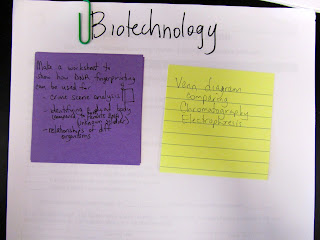 Biotechnology
Make a worksheet to
show how DNA fingerprinting
can be used for
- crime scene analysis
- identifying a dead body
(compared to family
- relationships of diff
organisms
Venn diagram
comparing
Chromatography
Electrophoresis